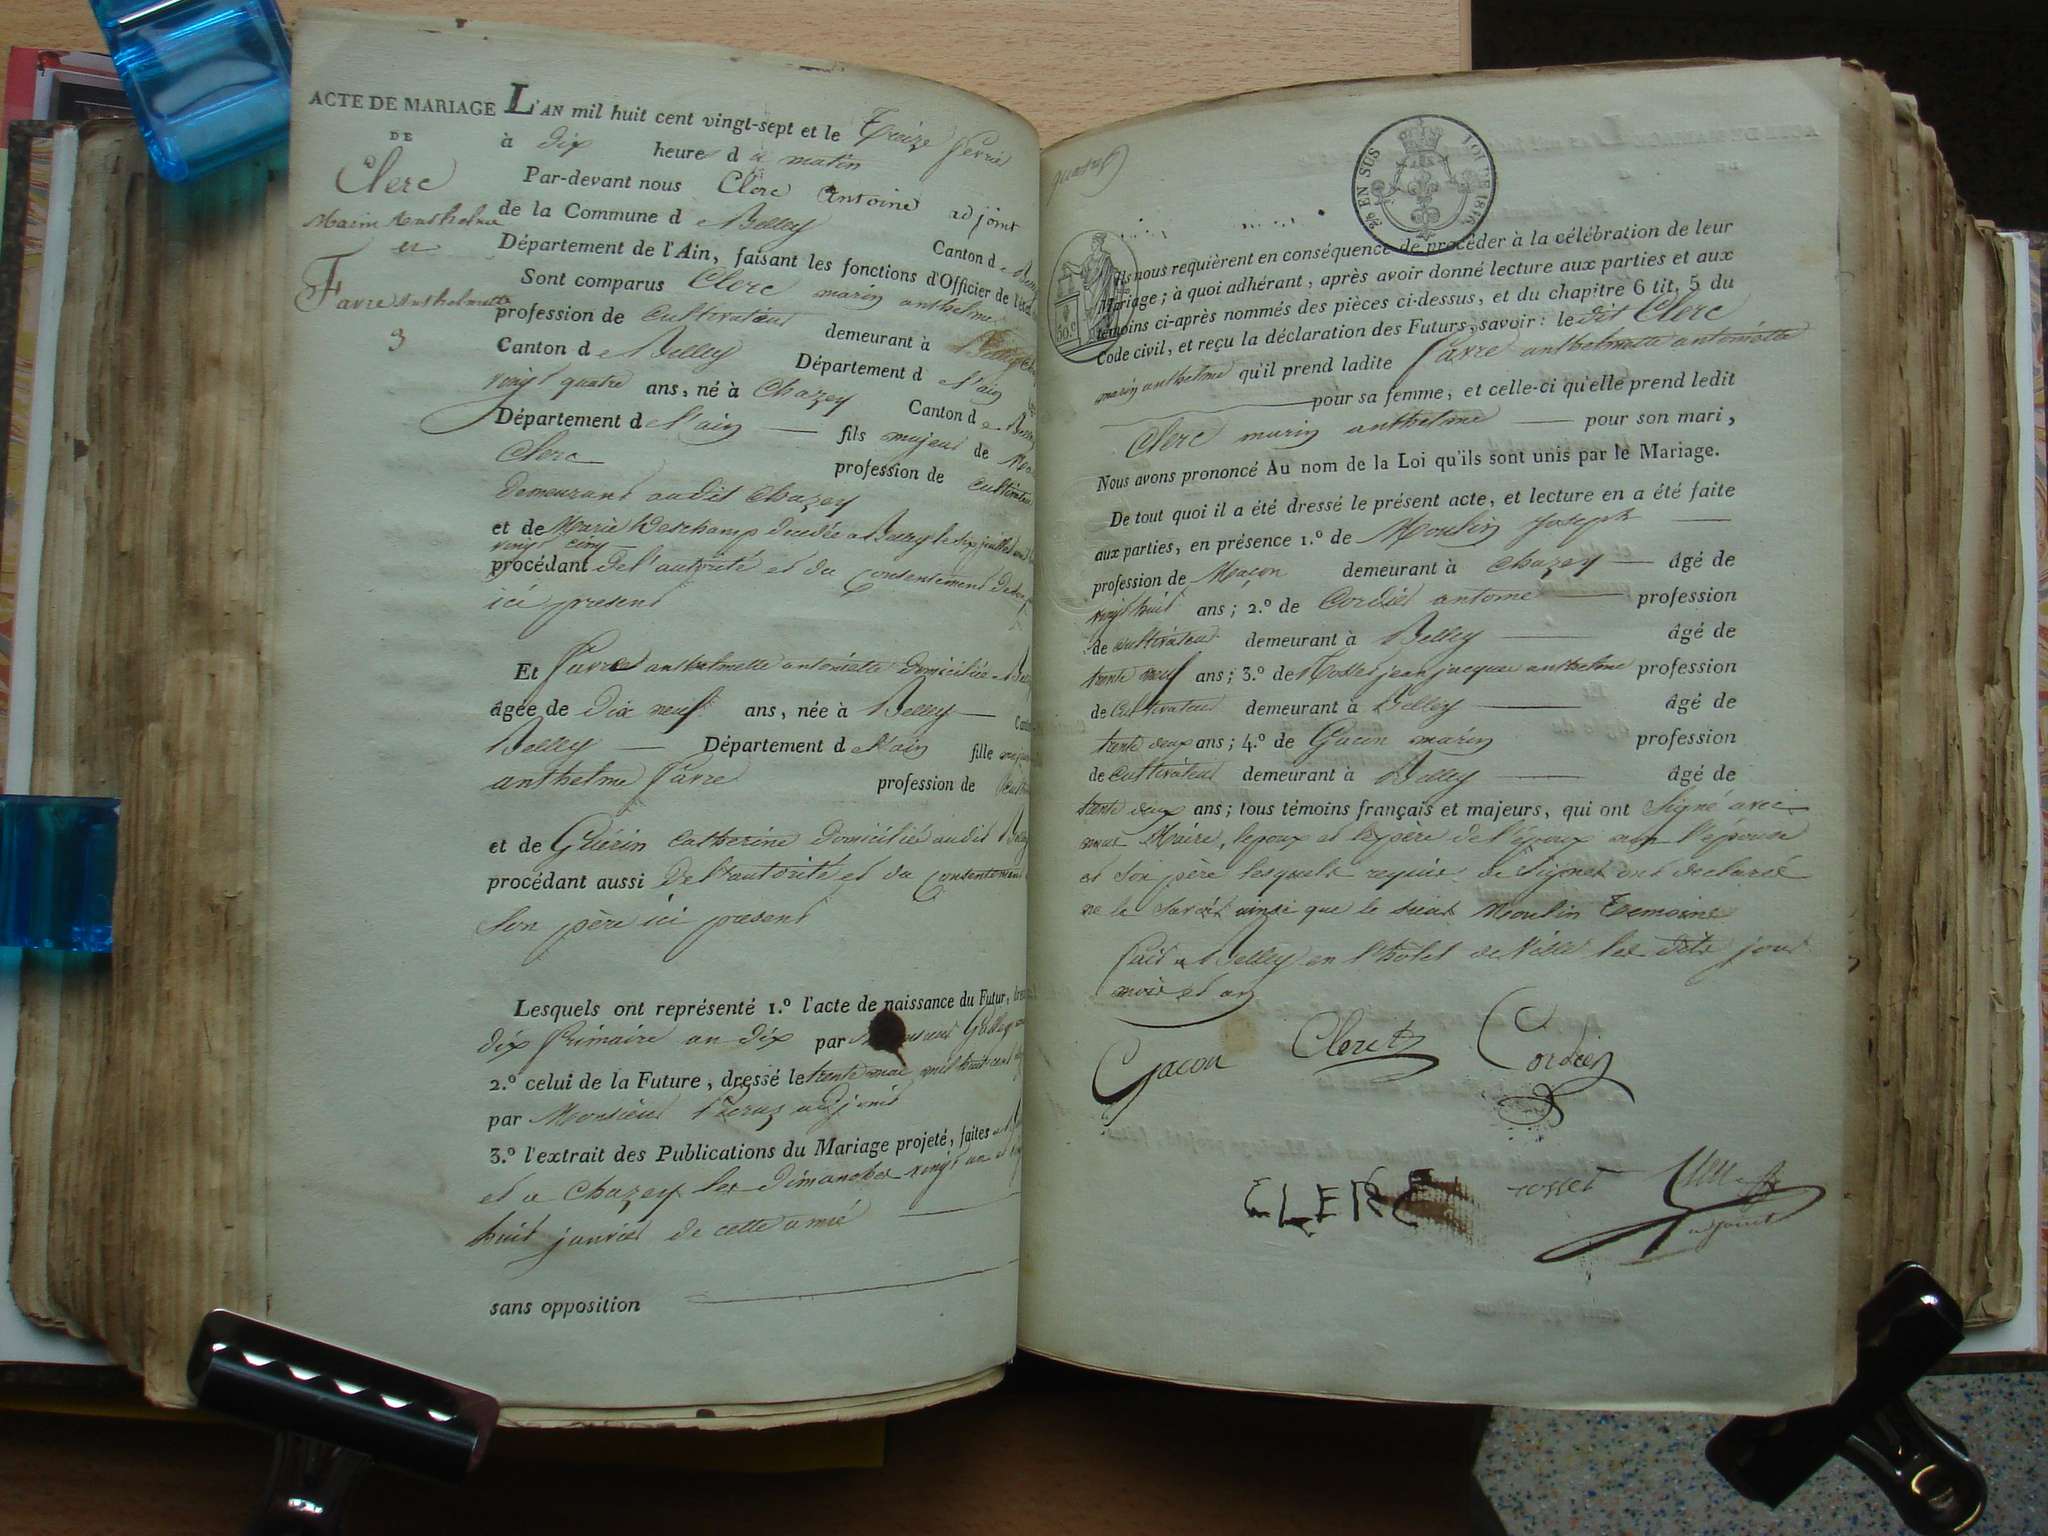 ACTE DE MARIAGE
DE
Clerc
Marin Anthelme
et
Favre Anthelmette
3
L'AN mil huit cent vingt-sept et le Treize
à dix heures du matin
Par-devant nous Clerc Antoine adjoint
de la Commune de Belley Canton de
Département de l'Ain, faisant les fonctions d'Officier de l'état
Sont comparus Clerc marin anthelme
profession de cultivateur demeurant à
Canton de Belley Département de l'ain
vingt quatre ans, né à Chazey Canton de
Département de l'ain — fils majeur de
Clerc profession de cultivateur
demeurant audit Chazey
et de Marie Deschamp décédée a Belley le six juillet
vingt cinq
procédant de l'autorité et du consentement de
ici présent
Et Favre anthelmette antoinette domiciliée
âgée de dix neuf ans, née à Belley —
Belley — Département de l'ain fille
anthelme Favre profession de
et de Guérin Catherine domicilié audit
procédant aussi de l'autorité et du consentement
son père ici présent
Lesquels ont représenté 1.º l'acte de naissance du Futur,
dix frimaire an dix par
2.º celui de la Future, dressé le trente mai mil huit cent
par Monsieur adjoint
3.º l'extrait des Publications du Mariage projeté, faites
et a Chazey les dimanches vingt un et
huit janvier de cette année
sans opposition
EN SUS LOI DE 1816
50.c
Ils nous requièrent en conséquence de procéder à la célébration de leur
Mariage; à quoi adhérant, après avoir donné lecture aux parties et aux
témoins ci-après nommés des pièces ci-dessus, et du chapitre 6 tit. 5 du
Code civil, et reçu la déclaration des Futurs, savoir: le dit Clerc
marin anthelme qu'il prend ladite Favre anthelmette antoinette
pour sa femme, et celle-ci qu'elle prend ledit
Clerc marin anthelme — pour son mari,
Nous avons prononcé Au nom de la Loi qu'ils sont unis par le Mariage.
De tout quoi il a été dressé le présent acte, et lecture en a été faite
aux parties, en présence 1.º de Moulin Joseph —
profession de Maçon demeurant à Chazey — âgé de
vingt huit ans; 2.º de Cordier antoine — profession
de cultivateur demeurant à Belley — âgé de
trente neuf ans; 3.º de jean jacques anthelme profession
de cultivateur demeurant à Belley — âgé de
trente deux ans; 4.º de Gacon marin profession
de cultivateur demeurant à Belley — âgé de
trente deux ans; tous témoins français et majeurs, qui ont signé avec
nous Maire, l'epoux et le père de l'époux non l'épouse
et son père lesquels requis de signer ont declaré
ne le savoir ainsi que le sieur Moulin temoins
fait a Belley en l'hotel de Ville les dits jour
mois et an
Gacon Clerc Cordier
CLERC
adjoint